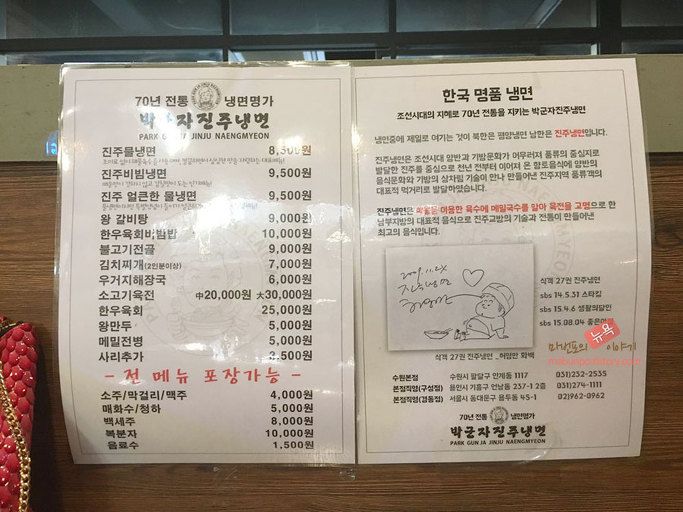 70년 전통 냉면명가
박군자진주냉면
PARK GUN JA JINJU NAENGMYEON
진주물냉면 8,500원
진주비빔냉면 9,500원
진주 얼큰한 물냉면 9,500원
왕 갈비탕 9,000원
한우육회비빔밥 10,000원
불고기전골 9,000원
김치찌개(2인분이상) 7,000원
우거지해장국 6,000원
소고기육전 中20,000원 大30,000원
한우육회 25,000원
왕만두 5,000원
메밀전병 5,000원
사리추가 2,500원
- 전 메뉴 포장가능 -
소주/막걸리/맥주 4,000원
매화수/청하 5,000원
백세주 8,000원
복분자 10,000원
음료수 1,500원
한국 명품 냉면
조선시대의 지혜로 70년 전통을 지키는 박군자진주냉면
냉면중에 제일로 여기는 것이 북한은 평양냉면 남한은 진주냉면입니다.
진주냉면은 조선시대 양반교 기방문화가 어우러져 풍류의 중심지로
발달한 진주를 중심으로 천년 전부터 이어져 온 향토음식에 양반의
음식문화와 기방의 상차림 기술이 만나 만들어낸 진주지역 풍류객의
대표적 먹거리로 발달하였습니다.
진주냉면은 해물을 머금한 육수에 메밀국수를 말아 육전을 고명으로 한
남부지방의 대표적 음식으로 진주교방의 기술과 전통이 만들어낸
최고의 음식입니다.
진주냉면
식객 27권 진주냉면
sbs 14.5.31 스타킹
sbs 15.4.6 생활의달인
sbs 15.08.04 좋은아침
뉴욕
마번표의 이야기
식객 27권 진주냉면 _허영만 화백
수원본점 수원시 팔달구 인계동 1117 031)232-2535
본점직영(구성점) 용인시 기흥구 언남동 237-1 2층 031)274-1111
본점직영(경동점) 서울시 동대문구 용두동 45-1 02)962-0962
70년 전통 냉면명가
박군자진주냉면
PARK GUN JA JINJU NAENGMYEON